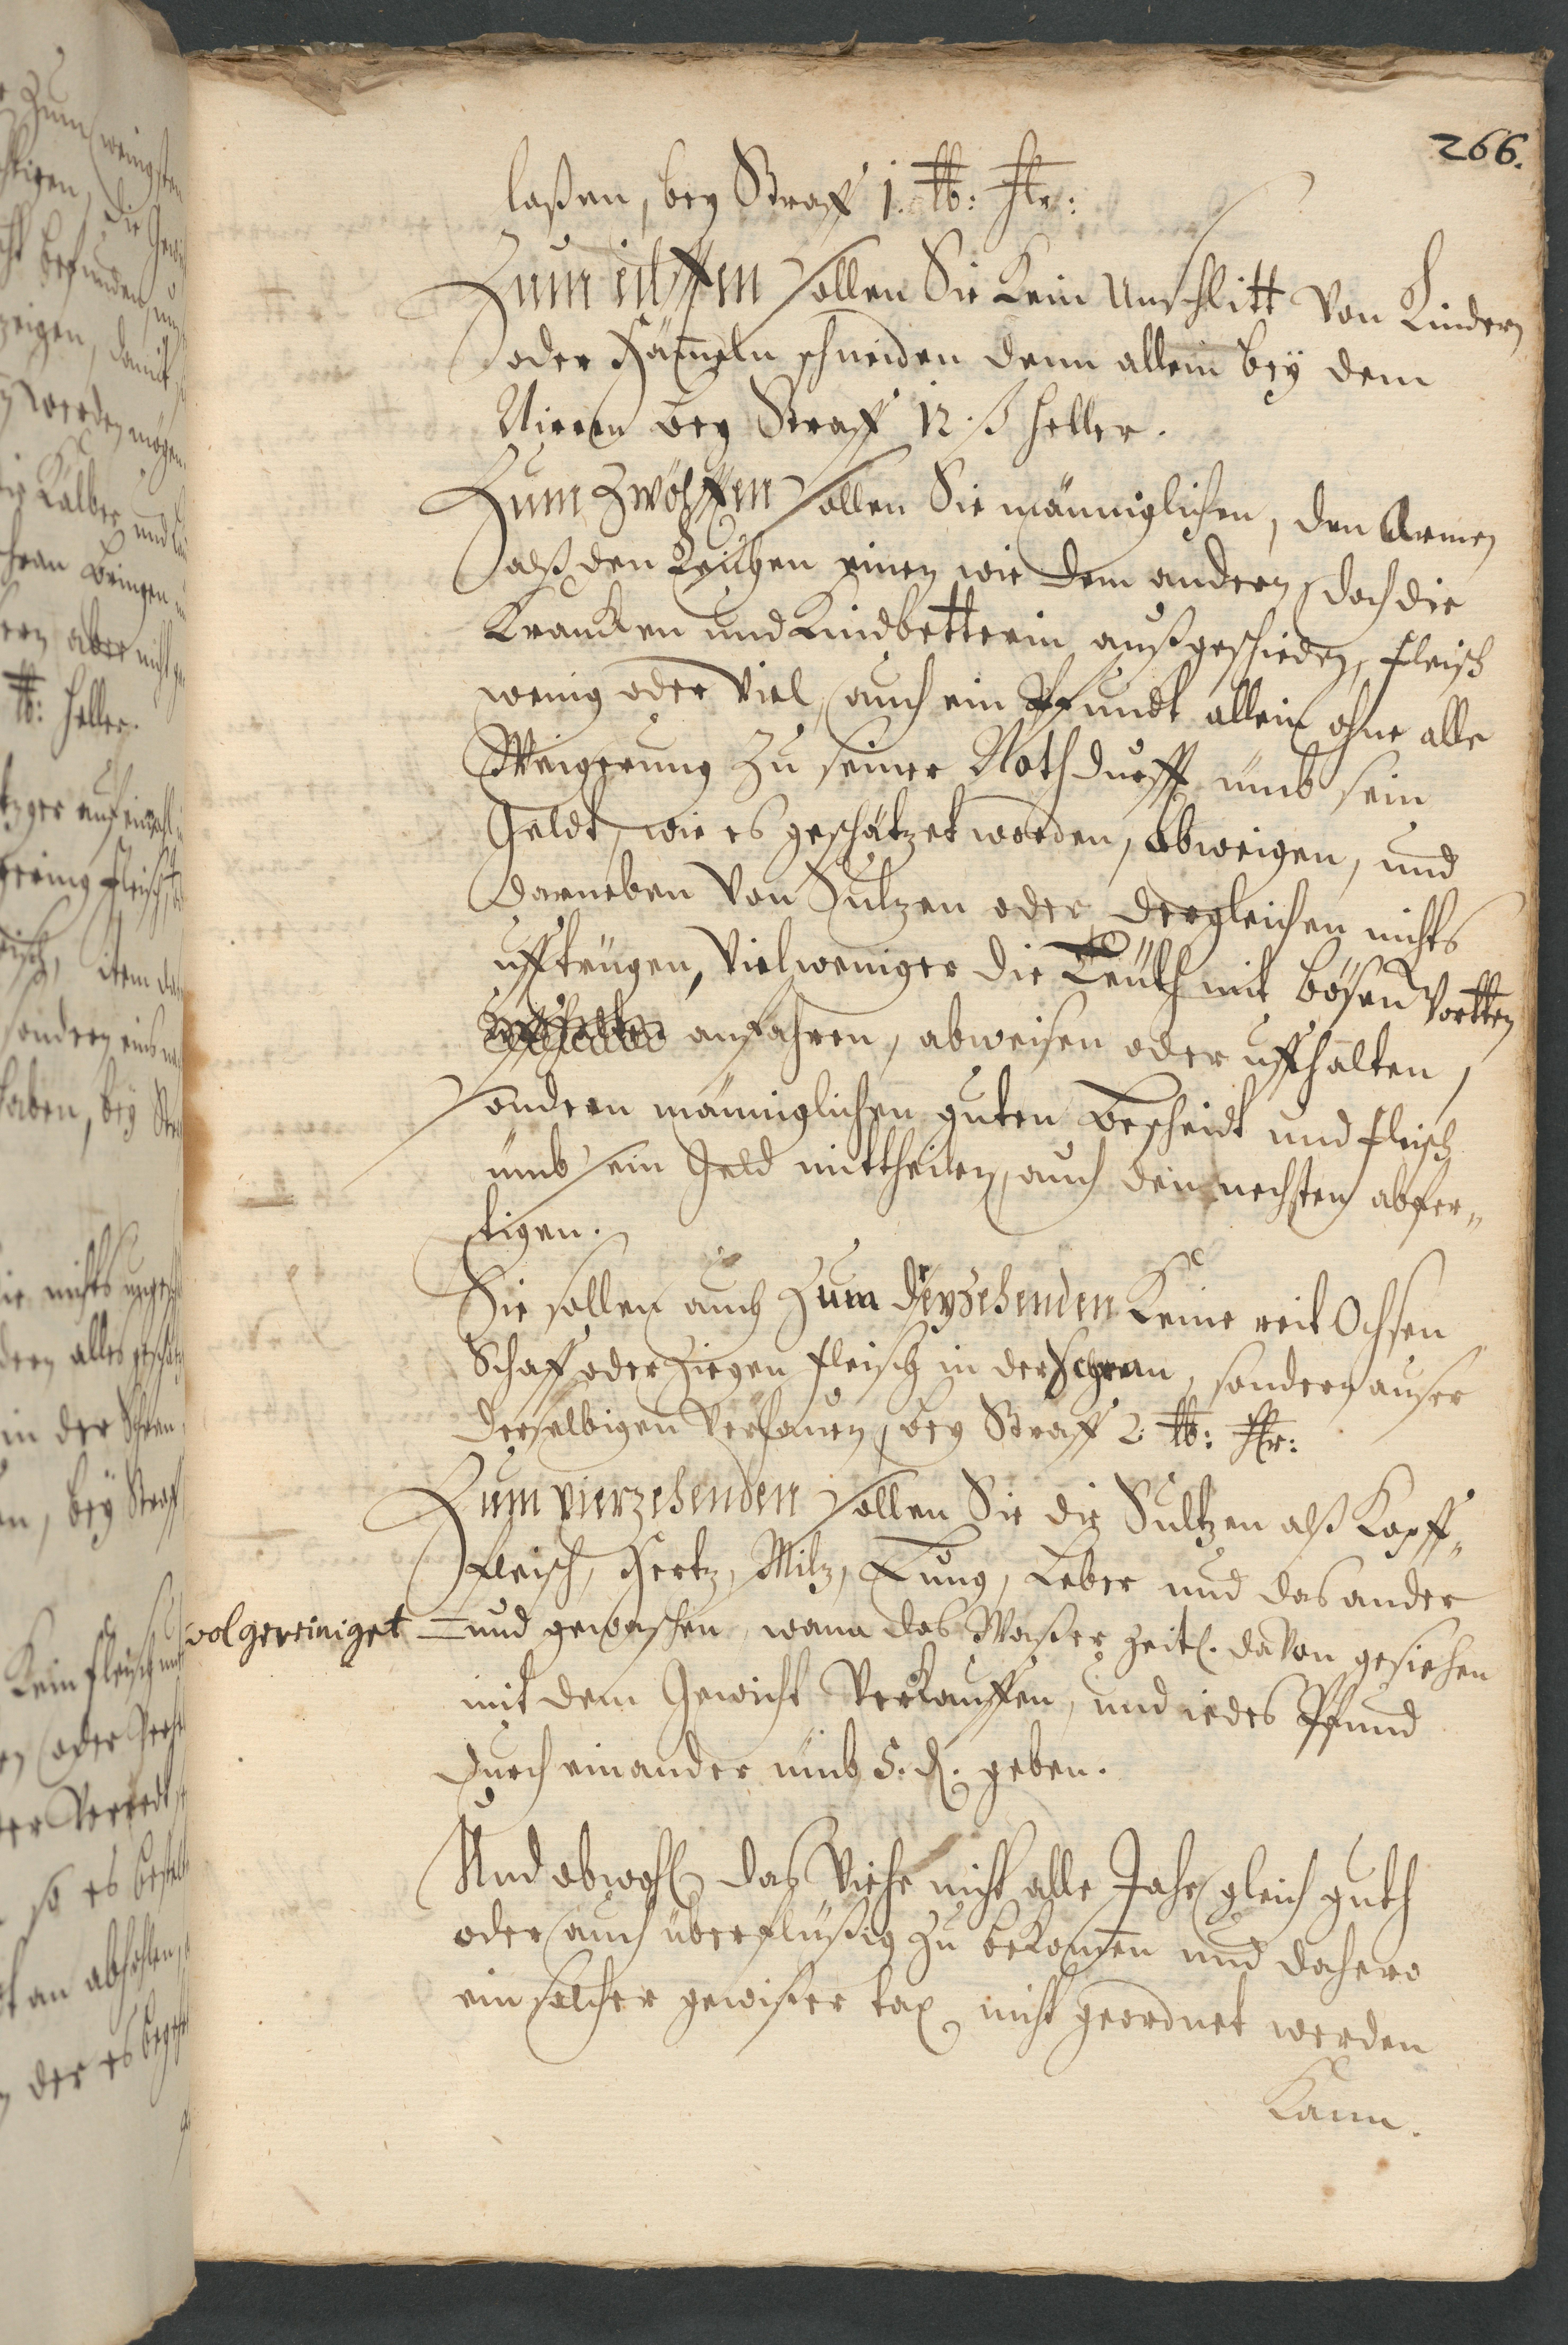 266.
laßen, bey Straff 1. ℔: Hlr:
Zum eilfften sollen Sie kein Unschlitt von Rindern
oder Häm̄eln schneiden denn allein bey dem
Nieren bey Straff 12. ß heller.
Zum Zwölfften sollen Sie männiglichen, den Armen
alß den Reichen einen wie dem andern, doch die
Krancken und Kindbetterin außgeschieden, fleisch
wenig oder viel, auch ein Pfundt allein ohne alle
Weigerung zu seiner Nothdurfft umb sein
Geldt, wie es geschätzet worden, abweigen, und
darneben von Sultzen oder dergleichen nichts
ufftrüngen, vielweniger die Leüth mit bösen Wortten
anfahren, abweisen oder uffhalten,
sondern männiglichen guten bescheidt und fleisch
umb sein Geld mittheilen, auch den nechsten abfer„
tigen.
Sie sollen auch Zum dreyzehenden keine reit Ochsen
Schaff oder Ziegen fleisch in der Schran, sondern auser
derselbigen verhauen, bey Straff 2. ℔: Hlr:
Zum vierzehenden sollen Sie die Sultzen alß Kopff„
fleisch, Hertz, Miltz, Lung, Leber und das ander
wol gereiniget = und gewaschen, wann das Waßer zeitl. davon gesiehen
mit dem Gewicht verkauffen, und iedes Pfund
durch einander umb 5. d. geben.
Und obwohl das Viehe nicht alle Jahr gleich guth
oder auch überflüßig zu bekom̄en und dahero
ein solcher gewißer tax nicht geordnet werden
kann.